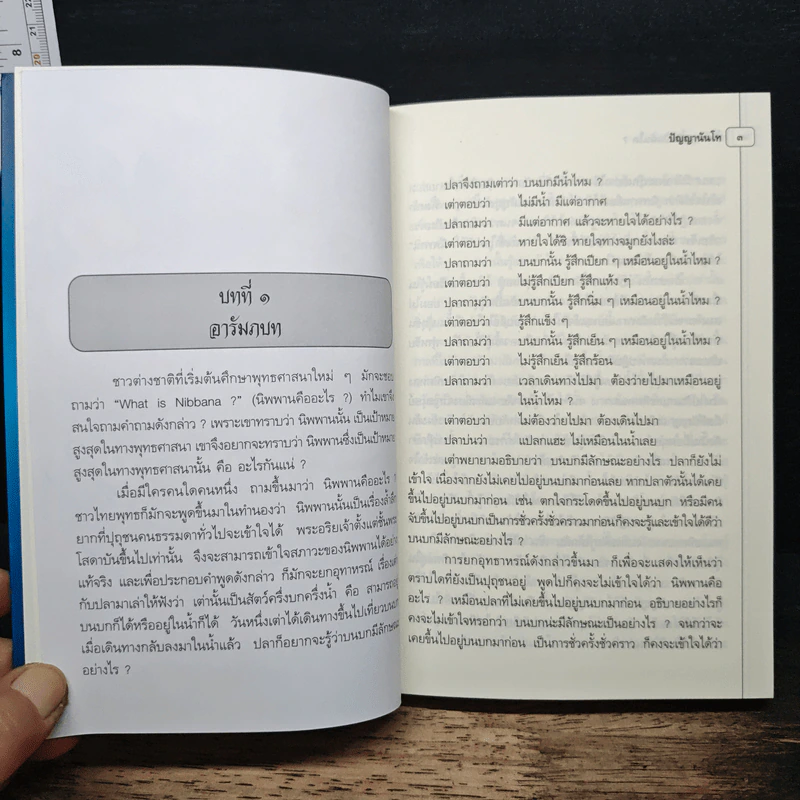 บทที่ ๑
อารัมภบท
ชาวต่างชาติที่เริ่มต้นศึกษาพุทธศาสนาใหม่ ๆ มักจะชอบ
ถามว่า “What is Nibbana ?” (นิพพานคืออะไร ?) ทำไมเขาจึง
สนใจถามคำถามดังกล่าว ? เพราะเขาทราบว่า นิพพานนั้น เป็นเป้าหมาย
สูงสุดในทางพุทธศาสนา เขาจึงอยากจะทราบว่า นิพพานซึ่งเป็นเป้าหมาย
สูงสุดในทางพุทธศาสนานั้น คือ อะไรกันแน่ ?
เมื่อมีใครคนใดคนหนึ่ง ถามขึ้นมาว่า นิพพานคืออะไร ?
ชาวไทยพุทธก็มักจะพูดขึ้นมาในทำนองว่า นิพพานนั้นเป็นเรื่องล้ำลึก
ยากที่ปุถุชนคนธรรมดาทั่วไปจะเข้าใจได้ พระอริยเจ้าตั้งแต่ชั้นพระ
โสดาบันขึ้นไปเท่านั้น จึงจะสามารถเข้าใจสภาวะของนิพพานได้อย่าง
แท้จริง และเพื่อประกอบคำพูดดังกล่าว ก็มักจะยกอุทาหรณ์ เรื่องเต่า
กับปลามาเล่าให้ฟังว่า เต่านั้นเป็นสัตว์ครึ่งบกครึ่งน้ำ คือ สามารถอยู่
บนบกก็ได้หรืออยู่ในน้ำก็ได้ วันหนึ่งเต่าได้เดินทางขึ้นไปเที่ยวบนบก
เมื่อเดินทางกลับลงมาในน้ำแล้ว ปลาก็อยากจะรู้ว่าบนบกมีลักษณะ
อย่างไร ?
ปัญญานันโท ๓
ปลาจึงถามเต่าว่า บนบกมีน้ำไหม ?
เต่าตอบว่า ไม่มีน้ำ มีแต่อากาศ
ปลาถามว่า มีแต่อากาศ แล้วจะหายใจได้อย่างไร ?
เต่าตอบว่า หายใจได้ซิ หายใจทางจมูกยังไงล่ะ
ปลาถามว่า บนบกนั้น รู้สึกเปียก ๆ เหมือนอยู่ในน้ำไหม ?
เต่าตอบว่า ไม่รู้สึกเปียก รู้สึกแห้ง ๆ
ปลาถามว่า บนบกนั้น รู้สึกนิ่ม ๆ เหมือนอยู่ในน้ำไหม ?
เต่าตอบว่า รู้สึกแข็ง ๆ
ปลาถามว่า บนบกนั้น รู้สึกเย็น ๆ เหมือนอยู่ในน้ำไหม ?
เต่าตอบว่า ไม่รู้สึกเย็น รู้สึกร้อน
ปลาถามว่า เวลาเดินทางไปมา ต้องว่ายไปมาเหมือนอยู่
ในน้ำไหม ?
เต่าตอบว่า ไม่ต้องว่ายไปมา ต้องเดินไปมา
ปลาบ่นว่า แปลกแฮะ ไม่เหมือนในน้ำเลย
เต่าพยายามอธิบายว่า บนบกมีลักษณะอย่างไร ปลาก็ยังไม่
เข้าใจ เนื่องจากยังไม่เคยขึ้นไปอยู่บนบกมาก่อนเลย หากปลาตัวนั้นได้เคย
ขึ้นไปอยู่บนบกมาก่อน เช่น ตกใจกระโดดขึ้นไปอยู่บนบก หรือมีคน
จับขึ้นไปอยู่บนบกเป็นการชั่วครั้งชั่วคราวมาก่อนก็คงจะรู้และเข้าใจได้ดีว่า
บนบกมีลักษณะอย่างไร ?
การยกอุทธาหรณ์ดังกล่าวขึ้นมา ก็เพื่อจะแสดงให้เห็นว่า
ตราบใดที่ยังเป็นปุถุชนอยู่ พูดไปก็คงจะไม่เข้าใจได้ว่า นิพพานคือ
อะไร ? เหมือนปลาที่ไม่เคยขึ้นไปอยู่บนบกมาก่อน อธิบายอย่างไรก็
คงจะไม่เข้าใจหรอกว่า บนบกน่ะมีลักษณะเป็นอย่างไร ? จนกว่าจะ
เคยขึ้นไปอยู่บนบกมาก่อน เป็นการชั่วครั้งชั่วคราว ก็คงจะเข้าใจได้ว่า